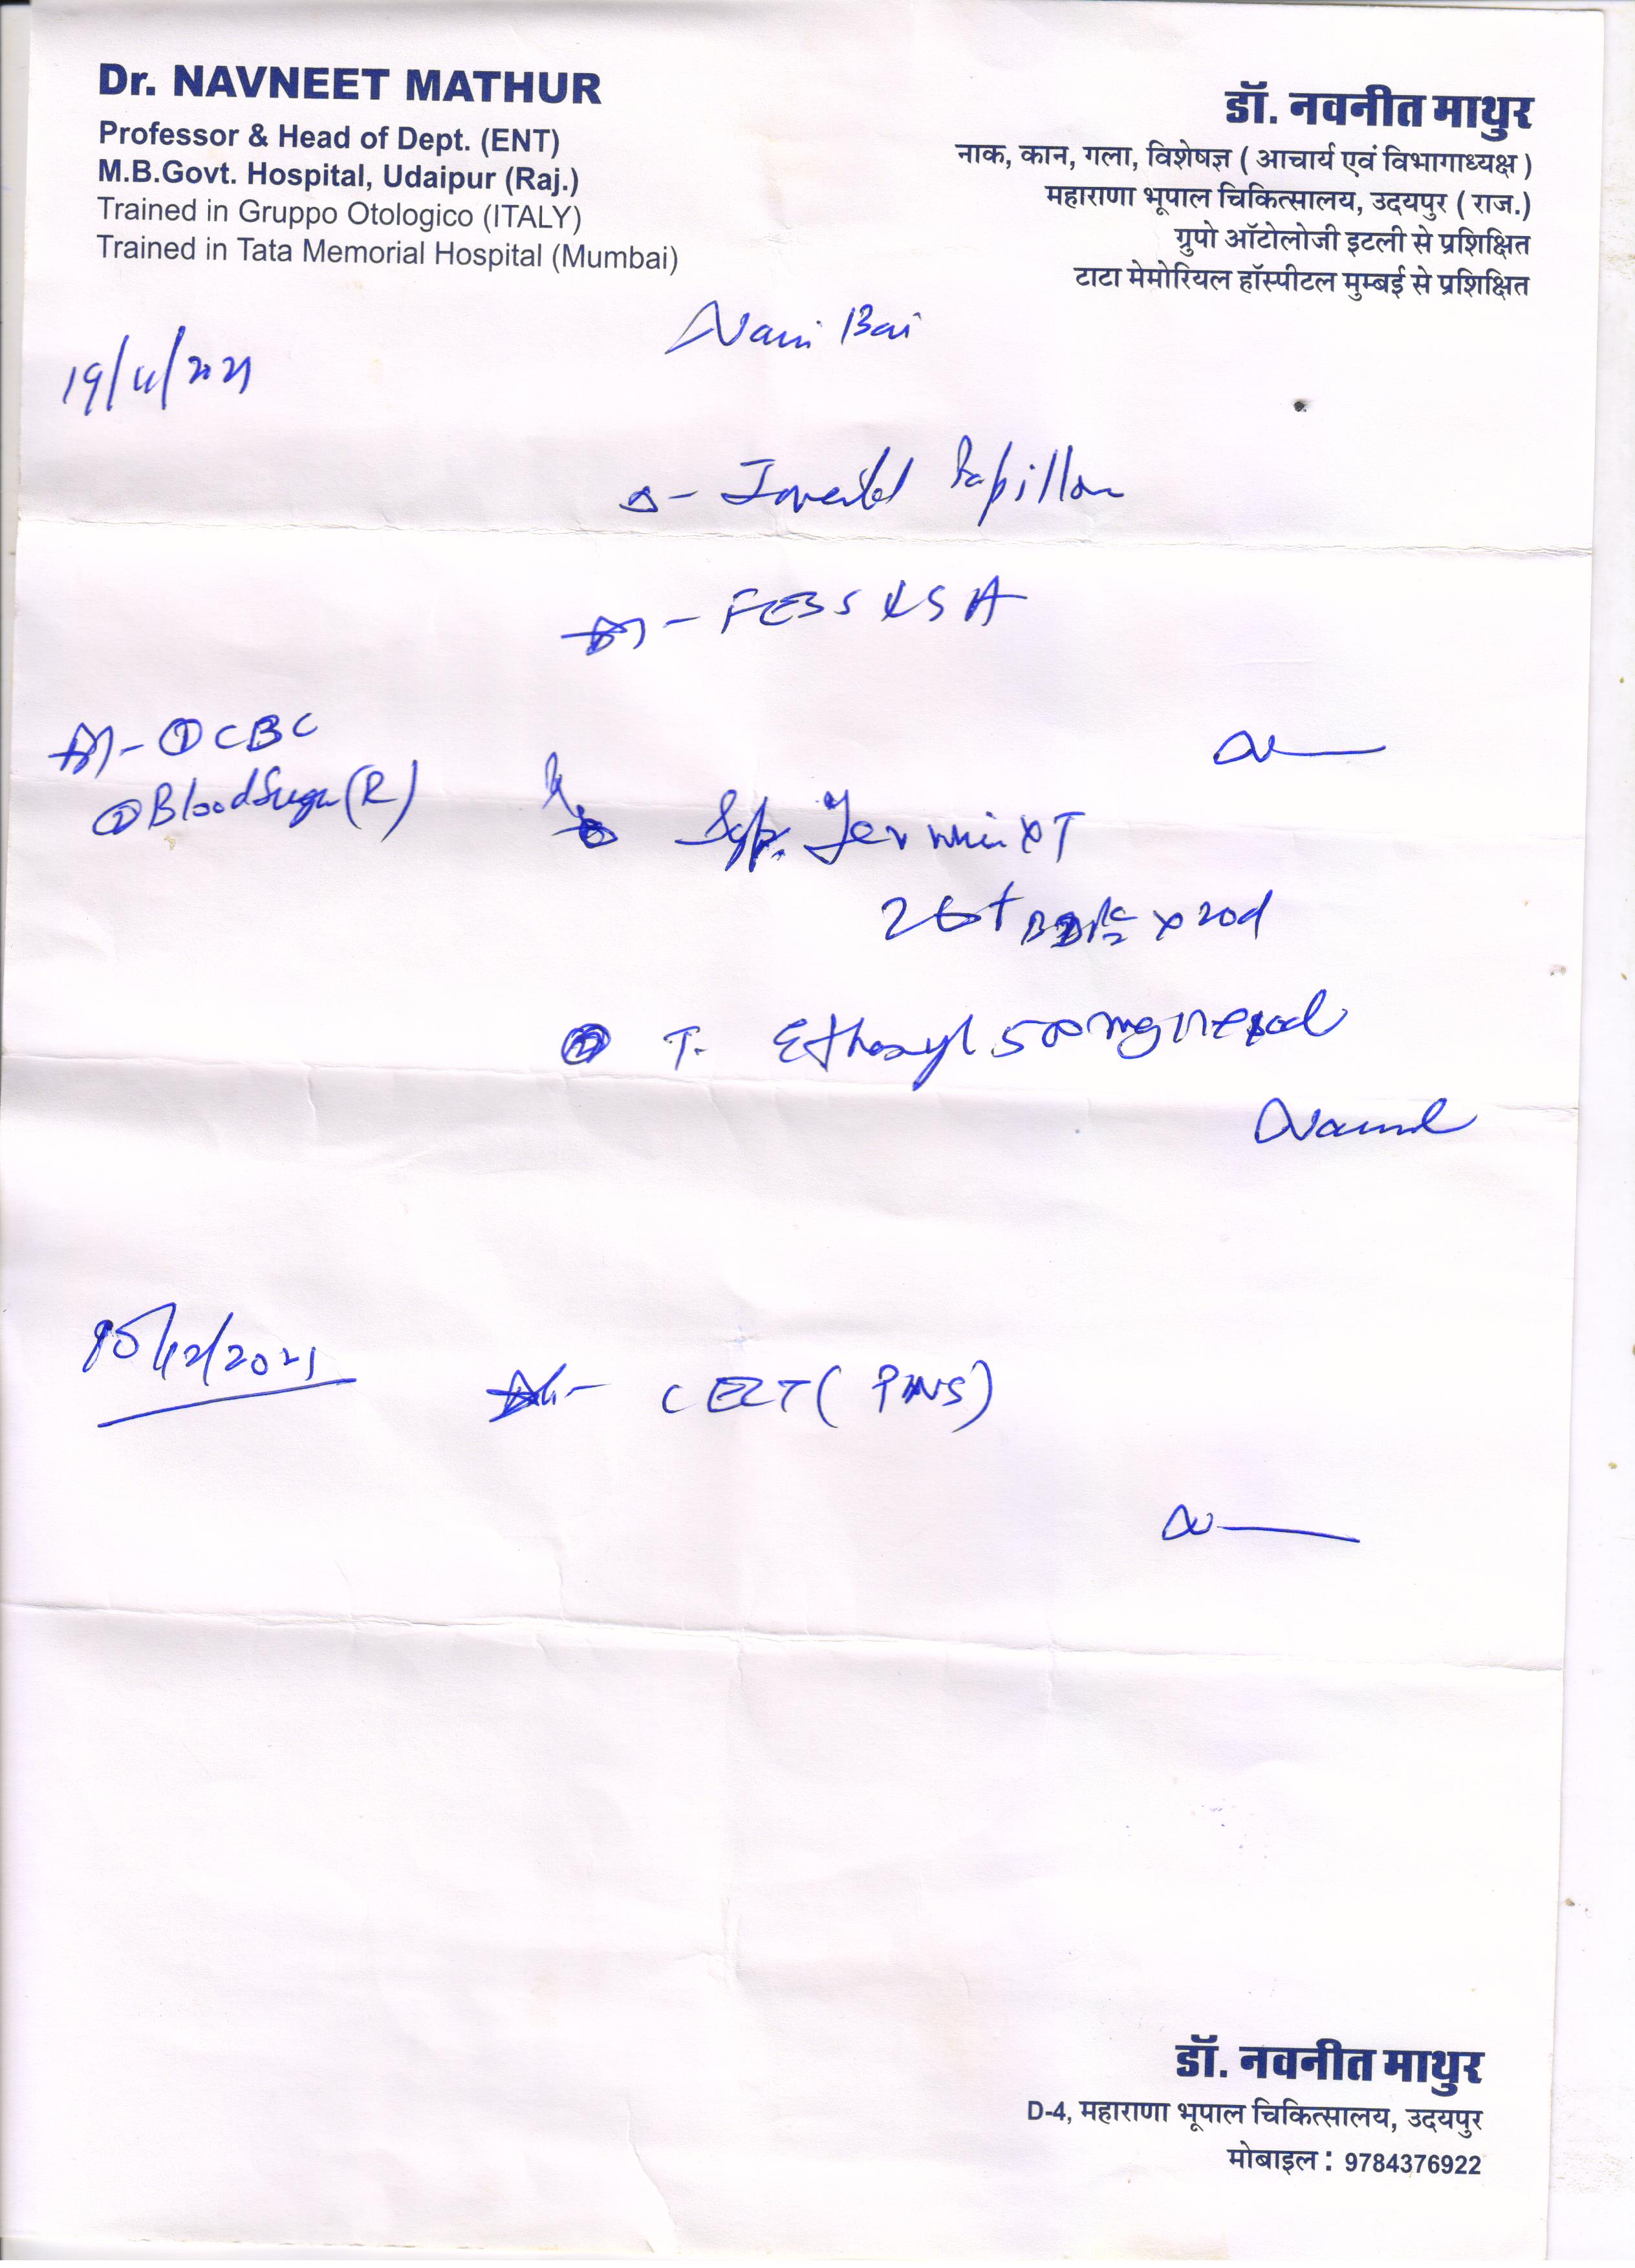 Dr. NAVNEET MATHUR
Professor & Head of Dept. (ENT)
M.B.Govt. Hospital, Udaipur (Raj.)
Trained in Gruppo Otologico (ITALY)
Trained in Tata Memorial Hospital (Mumbai)
डॉ. नवनीत माथुर
नाक, कान, गला, विशेषज्ञ ( आचार्य एवं विभागाध्यक्ष )
महाराणा भूपाल चिकित्सालय, उदयपुर ( राज.)
ग्रुपो ऑटोलोजी इटली से प्रशिक्षित
टाटा मेमोरियल हॉस्पीटल मुम्बई से प्रशिक्षित
Bai
19/11/2021
Δ - Inverted
- FESS
- ① CBC
② Blood Sugar (R)
Syp. XT
x 20d
T. 500mg
/12/2021
- CECT (PNS)
डॉ. नवनीत माथुर
D-4, महाराणा भूपाल चिकित्सालय, उदयपुर
मोबाइल : 9784376922